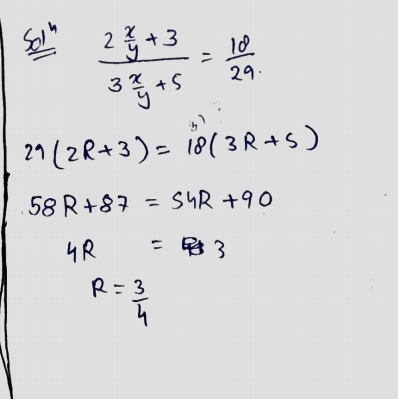 Solⁿ
2 x/y + 3 / 3 x/y + 5 = 18/29.
29 (2R+3) = 18( 3R+5)
58R+87 = 54R+90
4R = 3
R = 3/4